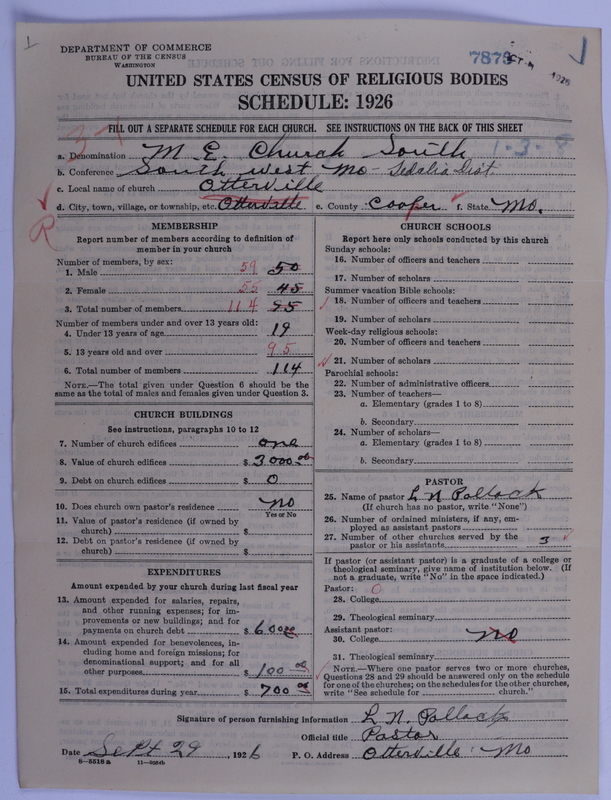 DEPARTMENT OF COMMERCE
BUREAU OF THE CENSUS
WASHINGTON
7873
UNITED STATES CENSUS OF RELIGIOUS BODIES
SCHEDULE: 1926
FILL OUT A SEPARATE SCHEDULE FOR EACH CHURCH. SEE INSTRUCTIONS ON THE BACK OF THIS SHEET
3-1
1-3-8
a. Denomination M. E. Church South
b. Conference South west Mo - Sedalia Dist.
c. Local name of church Otterville
d. City, town, village, or township, etc. Otterville e. County Cooper f. State Mo.
R
MEMBERSHIP
Report number of members according to definition of
member in your church
Number of members, by sex:
1. Male 59 50
2. Female 55 45
3. Total number of members 114 95
Number of members under and over 13 years old:
4. Under 13 years of age 19
5. 13 years old and over 95
6. Total number of members 114
NOTE.—The total given under Question 6 should be the
same as the total of males and females given under Question 3.
CHURCH BUILDINGS
See instructions, paragraphs 10 to 12
7. Number of church edifices one
8. Value of church edifices $ 3000.00
9. Debt on church edifices $ 0
10. Does church own pastor's residence no
Yes or No
11. Value of pastor's residence (if owned by
church) $
12. Debt on pastor's residence (if owned by
church) $
EXPENDITURES
Amount expended by your church during last fiscal year
13. Amount expended for salaries, repairs,
and other running expenses; for im-
provements or new buildings; and for
payments on church debt $ 600.00
14. Amount expended for benevolences, in-
cluding home and foreign missions; for
denominational support; and for all
other purposes $ 100.00
15. Total expenditures during year $ 700.00
CHURCH SCHOOLS
Report here only schools conducted by this church
Sunday schools:
16. Number of officers and teachers
17. Number of scholars
Summer vacation Bible schools:
18. Number of officers and teachers
19. Number of scholars
Week-day religious schools:
20. Number of officers and teachers
21. Number of scholars
Parochial schools:
22. Number of administrative officers
23. Number of teachers—
a. Elementary (grades 1 to 8)
b. Secondary
24. Number of scholars—
a. Elementary (grades 1 to 8)
b. Secondary
PASTOR
25. Name of pastor L N Pollock
(If church has no pastor, write "None")
26. Number of ordained ministers, if any, em-
ployed as assistant pastors
27. Number of other churches served by the
pastor or his assistants 3
If pastor (or assistant pastor) is a graduate of a college or
theological seminary, give name of institution below. (If
not a graduate, write "No" in the space indicated.)
Pastor: 0
28. College
29. Theological seminary
Assistant pastor:
30. College no
31. Theological seminary
NOTE.—Where one pastor serves two or more churches,
Questions 28 and 29 should be answered only on the schedule
for one of the churches; on the schedules for the other churches,
write "See schedule for church."
Signature of person furnishing information L. N. Pollock
Official title Pastor
Date Sept 29, 1926 P. O. Address Otterville Mo
8-5518 a